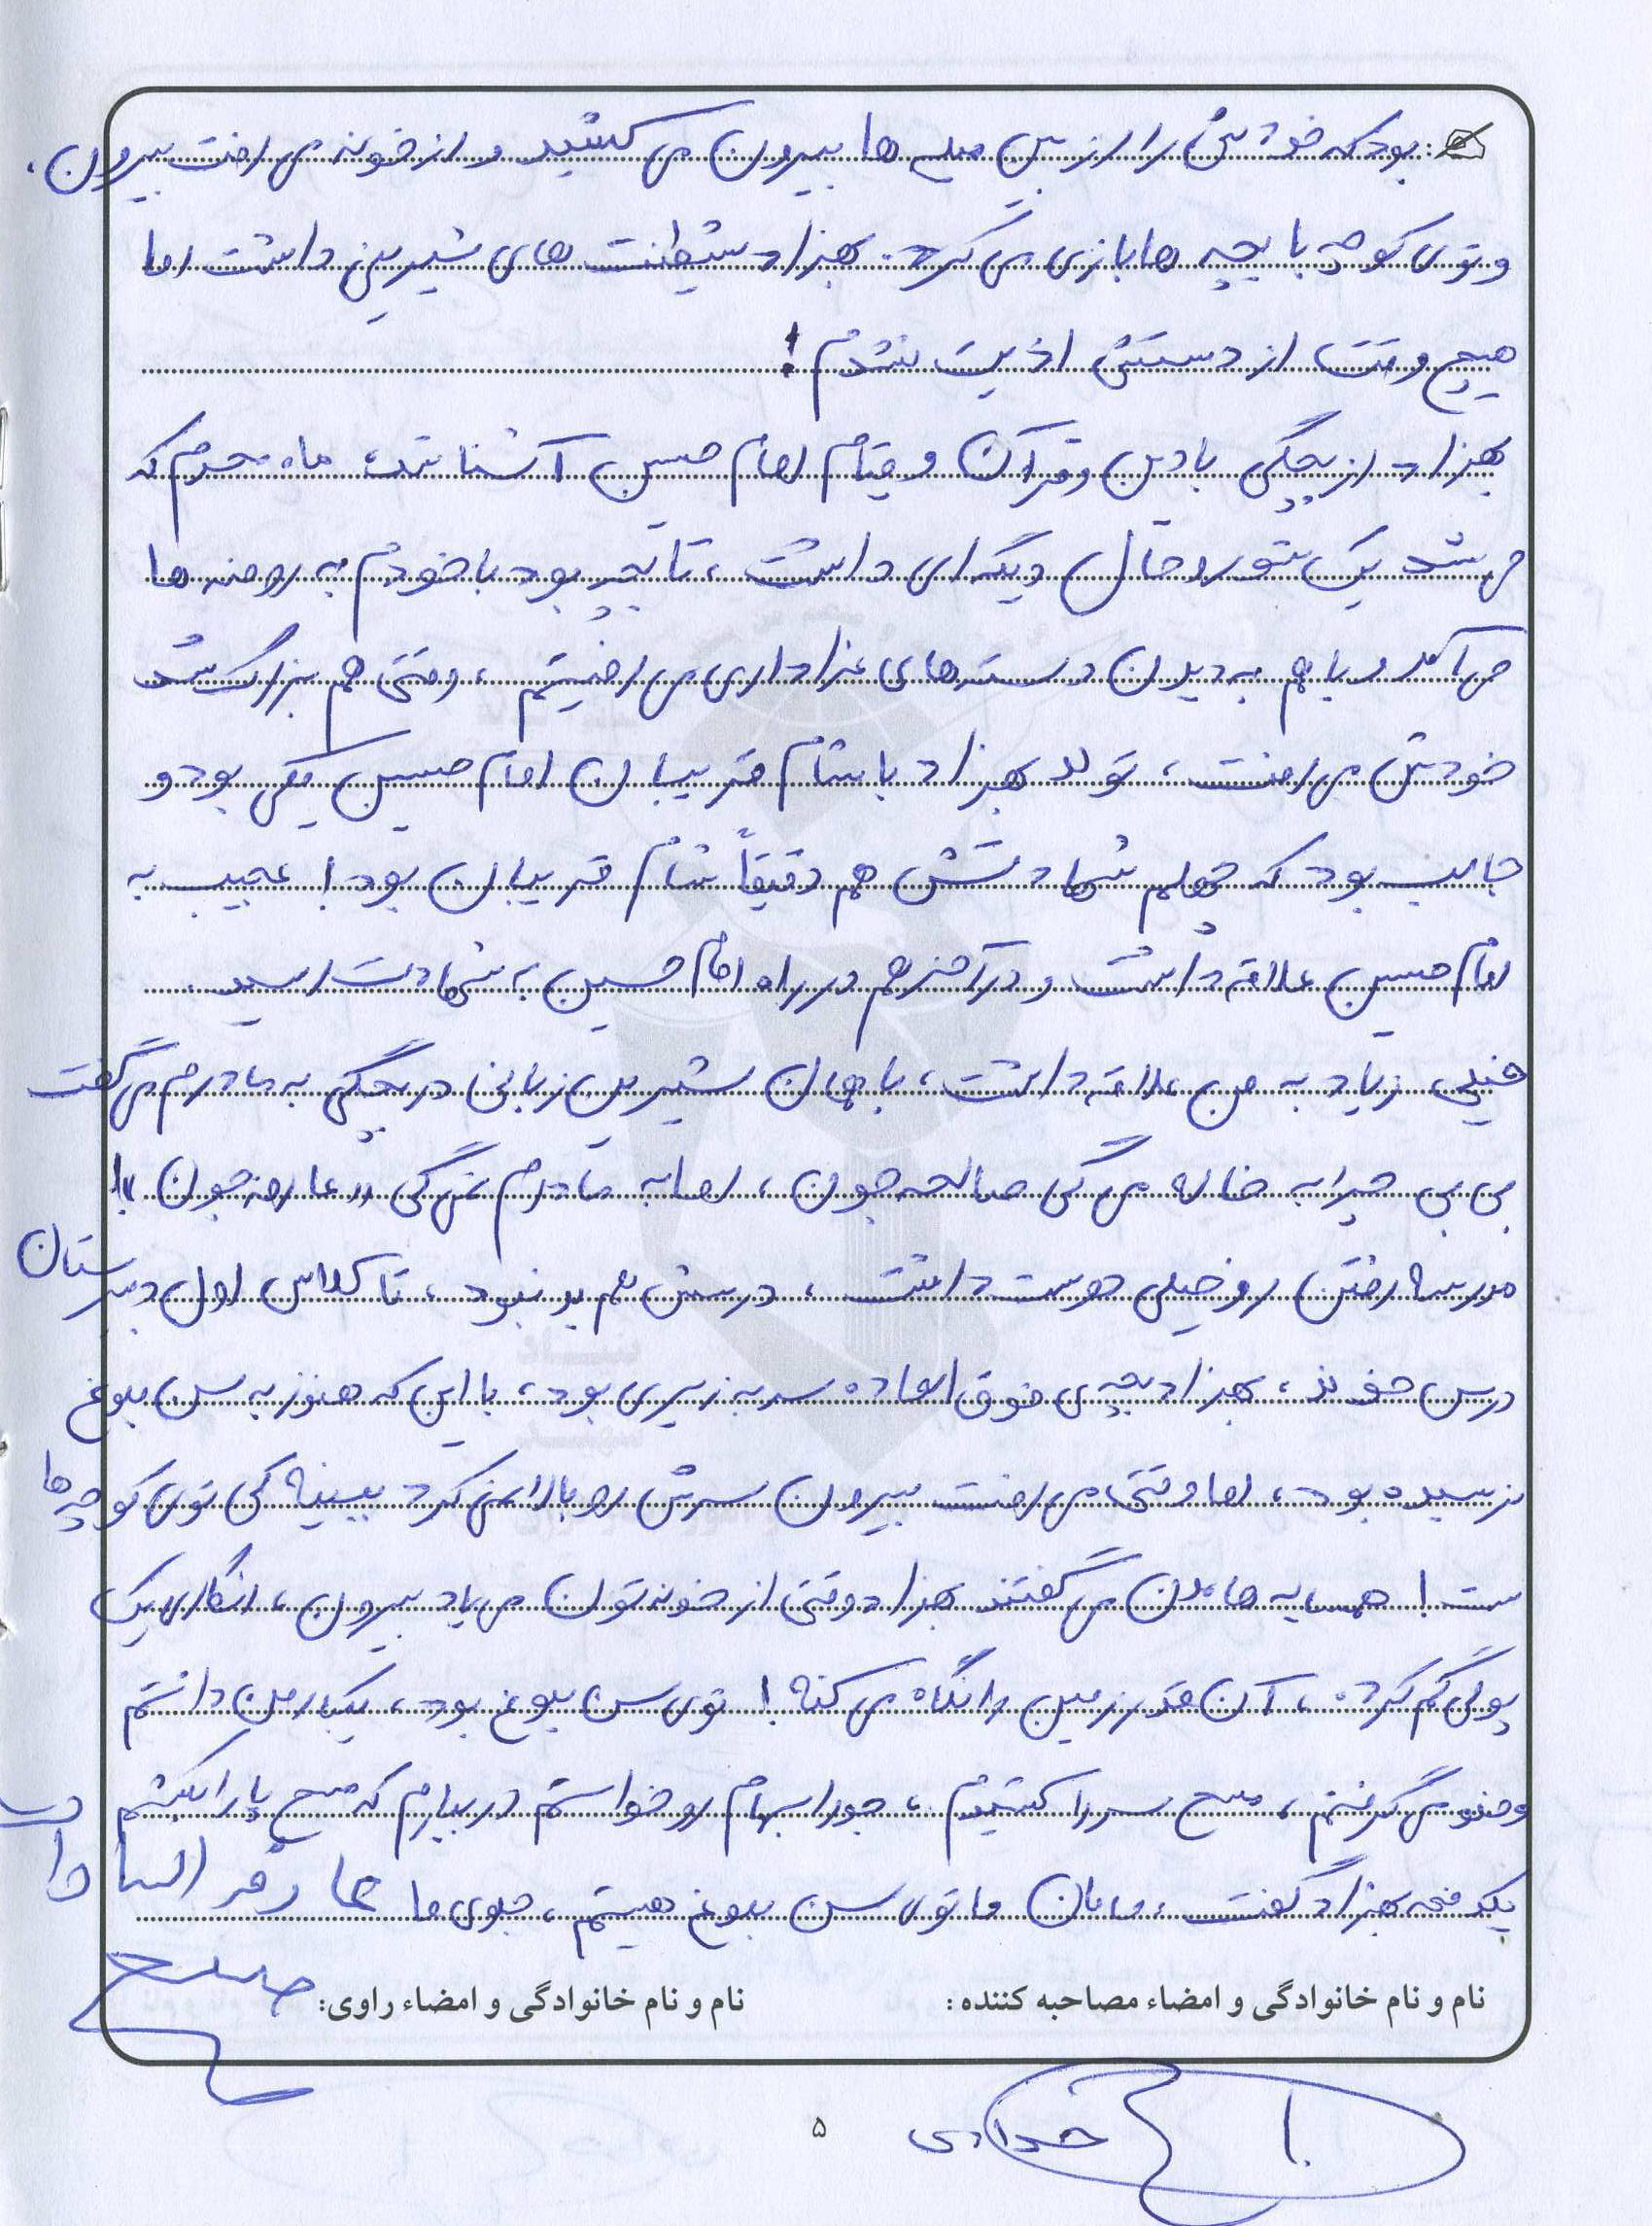 بود که خودش را از بین میله ها بیرون می کشید و از خونه می رفت بیرون.
و توی کوچه با بچه ها بازی می کرد. بهزاد شیطنت های شیرینی داشت اما
هیچ وقت از دستش اذیت نشدم!
بهزاد از بچگی با دین و قرآن و قیام امام حسین آشنا شد، ماه محرم که
می شد یک شور و حال دیگه ای داشت، تا بچه بود با خودم به روضه ها
می آمد و با هم به دیدن دسته های عزاداری می رفتیم، وقتی هم بزرگ شد
خودش می رفت، تولد بهزاد با شام غریبان امام حسین یکی بود و
جالب بود که چهلم شهادتش هم دقیقاً شام غریبان بود! عجیب به
امام حسین علاقه داشت و در آخر هم در راه امام حسین به شهادت رسید.
خیلی زیاد به من علاقه داشت، با همان شیرین زبانی در بچگی به مادرم می گفت
بی بی چرا به خاله می گی صالحه جون، اما به مادرم نمی گی «عارفه جون»!
مدرسه رفتن رو خیلی دوست داشت، درسش هم بد نبود، تا کلاس اول دبیرستان
درس خوند، بهزاد بچه ی فوق العاده سر به زیری بود، با این که هنوز به سن بلوغ
نرسیده بود، اما وقتی می رفت بیرون سرش رو بالا نمی کرد ببینه کی توی کوچه ها
ست! همسایه ها بهمون می گفتند بهزاد وقتی از خونه تون می یاد بیرون، انگار یک
پولی گم کرده، آن قدر زمین را نگاه می کنه! توی سن بلوغ بود، یکبار من داشتم
وضو می گرفتم، مسح سر را کشیدم، جورابهام رو خواستم دربیارم که مسح پا را بکشم
یکدفعه بهزاد گفت، مامان ما توی سن بلوغ هستیم، جلوی ما
عارفه السادات
نام و نام خانوادگی و امضاء مصاحبه کننده:
نام و نام خانوادگی و امضاء راوی:
۵